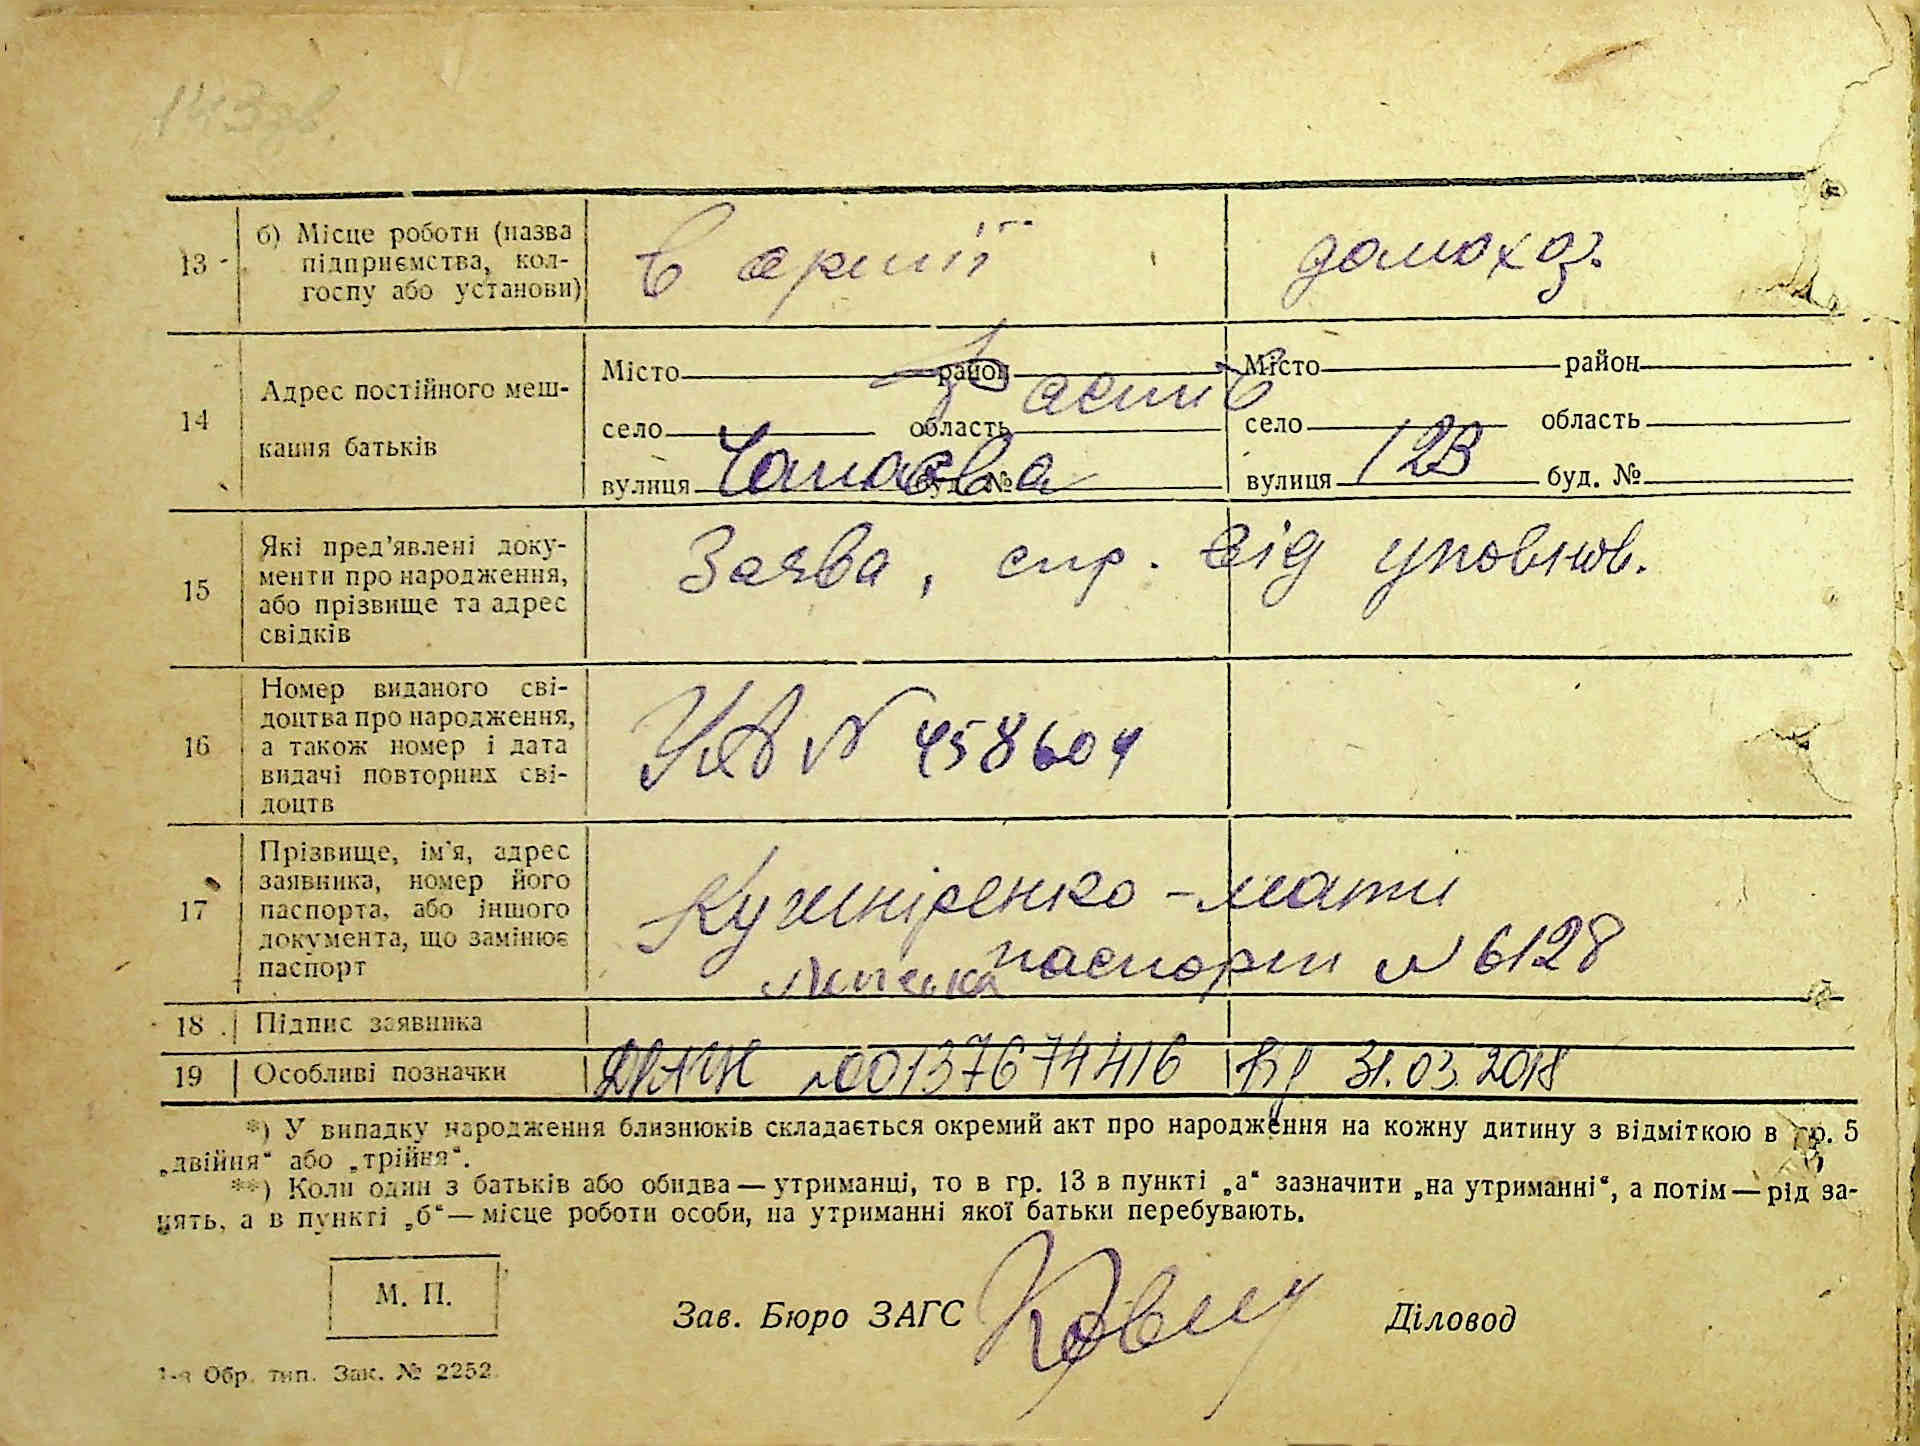 143 зв.
13
б) Місце роботи (назва
підприємства, кол-
госпу або установи)
в армії
домохоз.
14
Адрес постійного меш-
кання батьків
Місто район
Фастів
село область
вулиця Чапаєва буд. №
Місто район
село область
вулиця 123 буд. №
15
Які пред'явлені доку-
менти про народження,
або прізвище та адрес
свідків
Заява, спр. від уповнов.
16
Номер виданого сві-
доцтва про народження,
а також номер і дата
видачі повторних сві-
доцтв
№ 458604
17
Прізвище, ім'я, адрес
заявника, номер його
паспорта, або іншого
документа, що замінює
паспорт
Кушніренко - мати
паспорт № 6128
18
Підпис заявника
19
Особливі позначки
ДРАЦС №00137674416 від 31.03.2018
*) У випадку народження близнюків складається окремий акт про народження на кожну дитину з відміткою в гр. 5
„двійня“ або „трійня“.
**) Коли один з батьків або обидва — утриманці, то в гр. 13 в пункті „а“ зазначити „на утриманні“, а потім — рід за-
нять, а в пункті „б“ — місце роботи особи, на утриманні якої батьки перебувають.
М. П.
Зав. Бюро ЗАГС
Діловод
1-а Обр. тип. Зак. № 2252